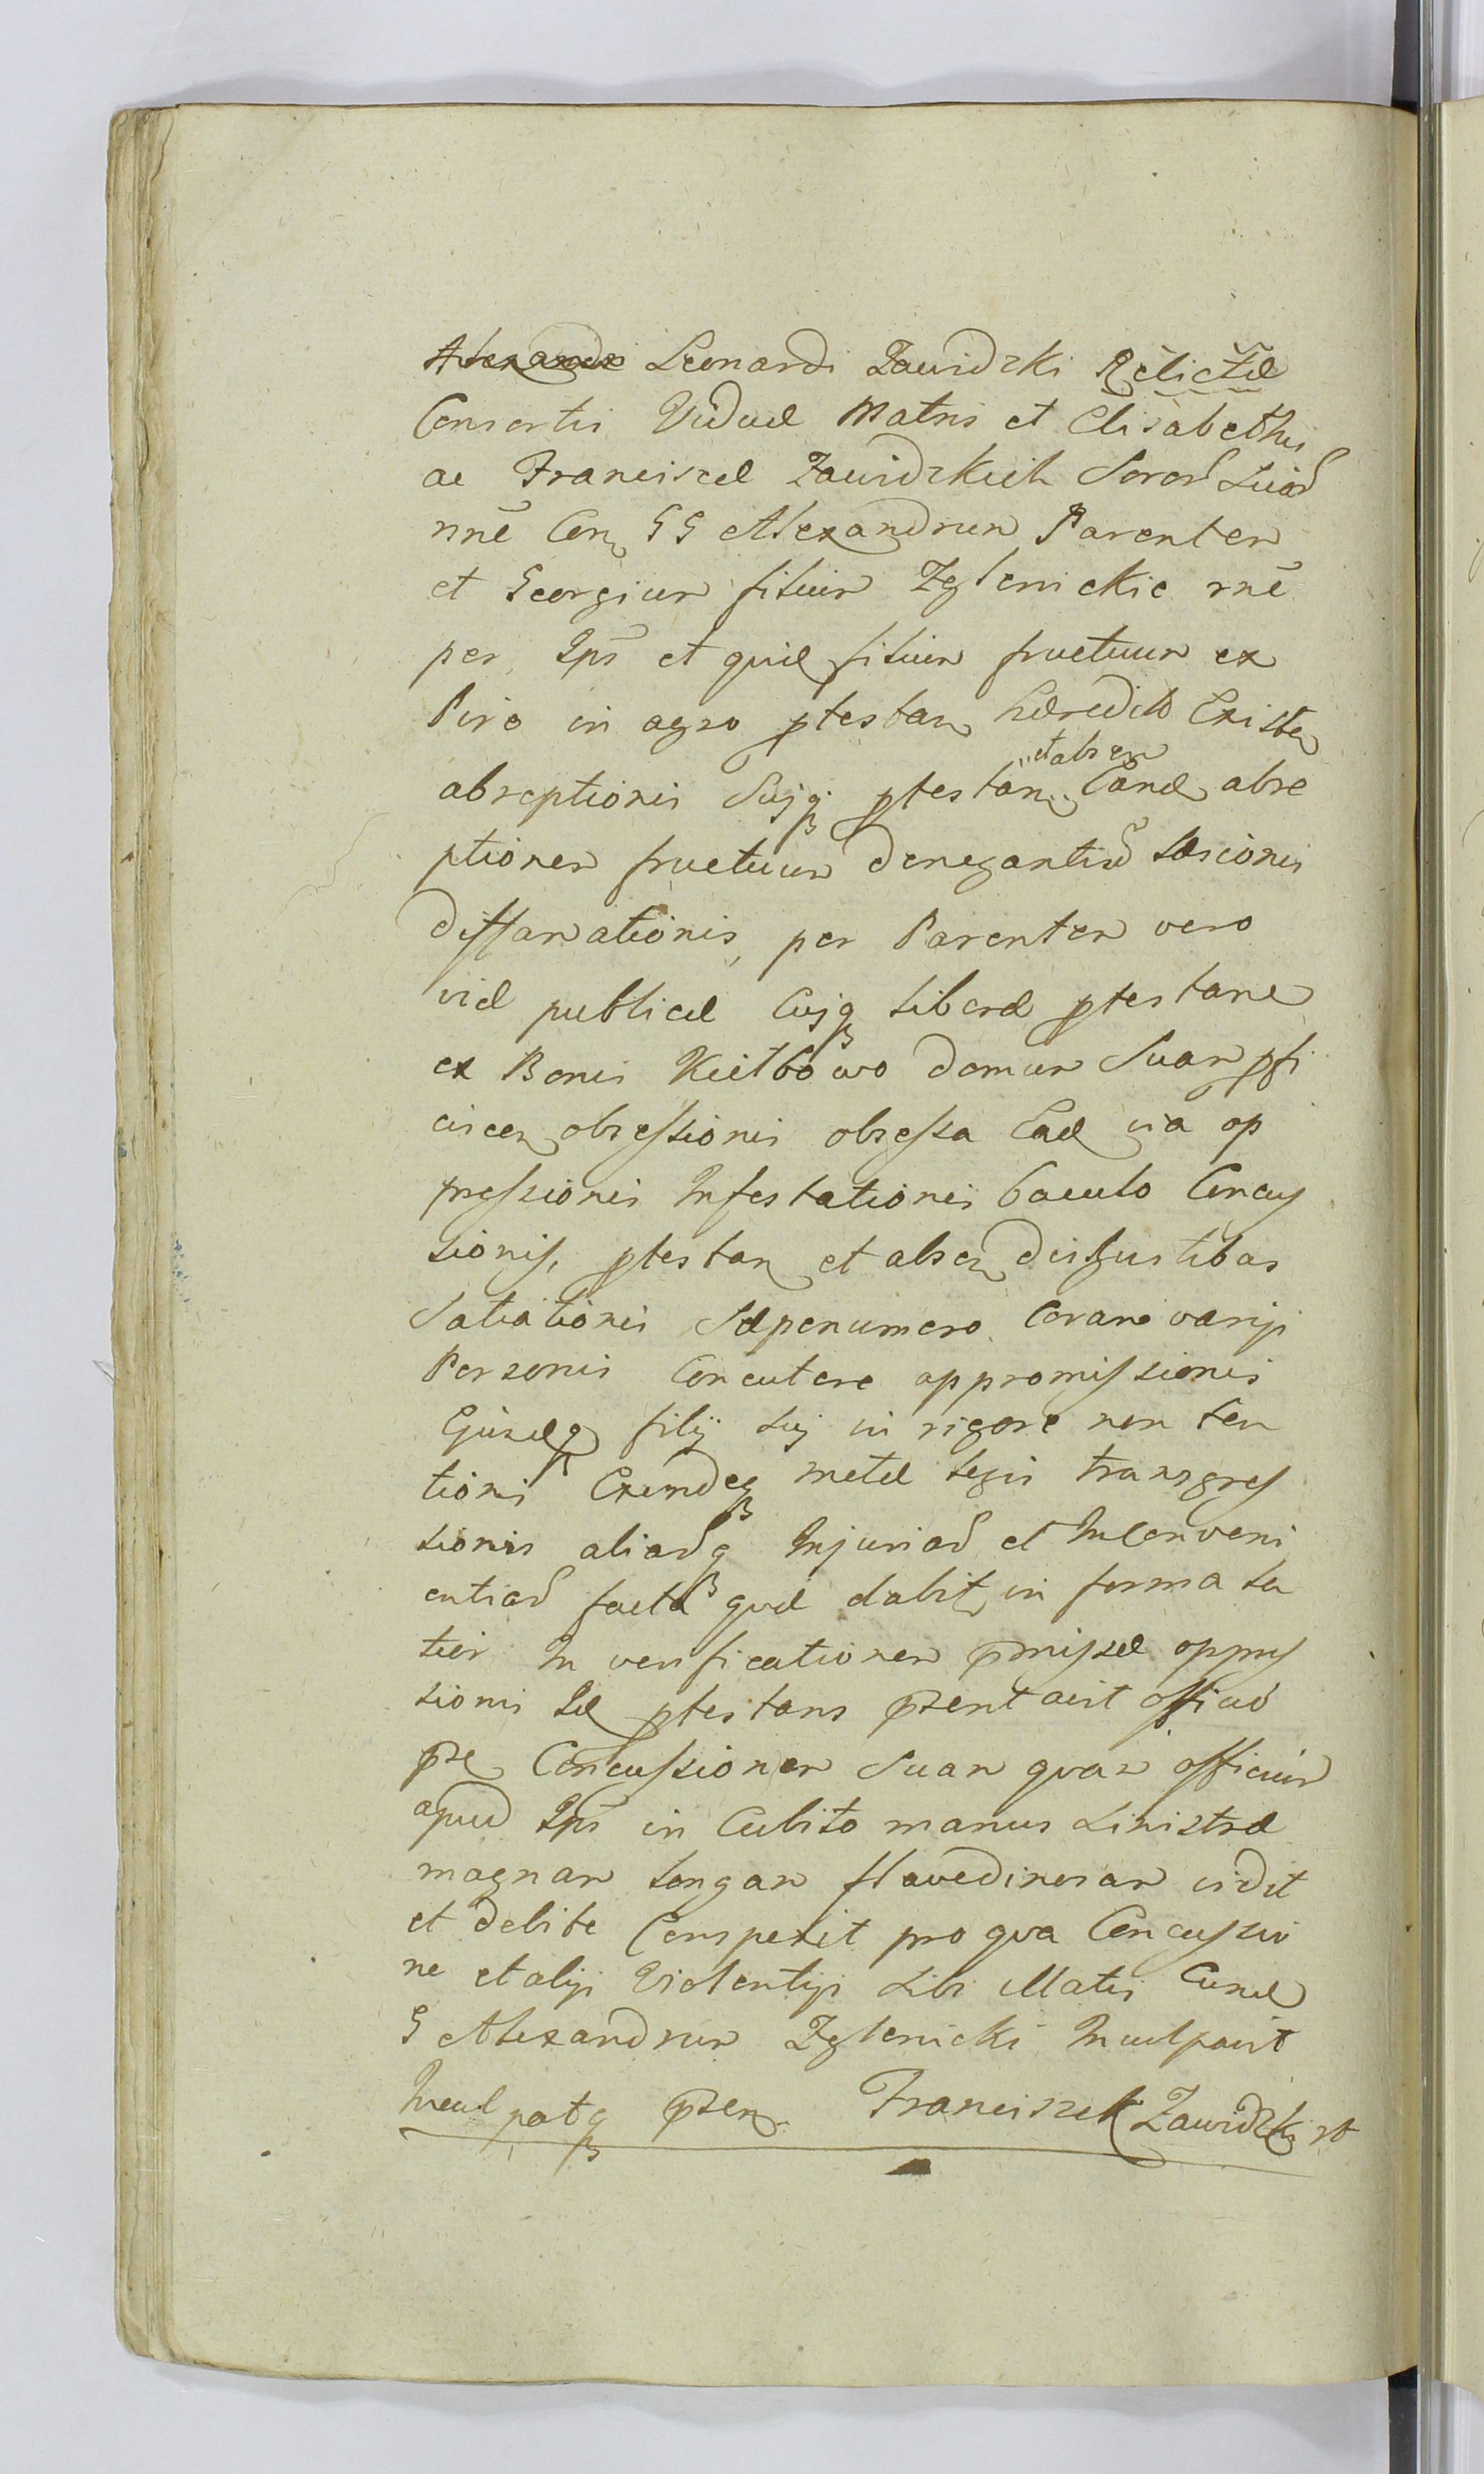 Alexandri Leonardi Zawidzki Relictæ
Consortis Viduæ Matris et Elisabethis
ac Franciscæ Zawidzkich Soror Suar
nñe Con GG Alexandrum Parentem
et Georgium filium Zglenickie rñe
per Ips et quid filium fructuum ex
Piro in agro ptestan hæredit Existen
et absen
abreptionis Sujq ptestan Canæ abre
ptionem fructuum denegantis læsionis
diffamationis, per Parentem vero
viæ publicæ Cujq liberæ ptestane
ex Bonis Kiełbowo domum Suam pfi
ciscen obsessionis obsessa Eaæ via op
pressionis Infestationis baculo Concus
sionis, ptestan et absen disgustibas
Satiationis Sæpenumero Coram varijs
Personis Concutere appromissionis
Ejusdq filij sui in rigore non ten
tionis Exindeq metæ legis transgres
sionis aliarq Injuriar et Inconveni
entiar facta quæ dabit in forma la
tior In verificationem pmissæ oppres
sionis Se ptestans psentavit officio
pse Concussionem Suam quam officium
apud Ips in Cubito manus Sinistræ
magnam longam flavedinosam vidit
et debite Conspexit pro qva Concussio
ne et alijs Violentijs Sibi illatis Eunæ
G Alexandrum Zglenicki Inculpavit
Inculpatq psen Franciszek Zawidzki